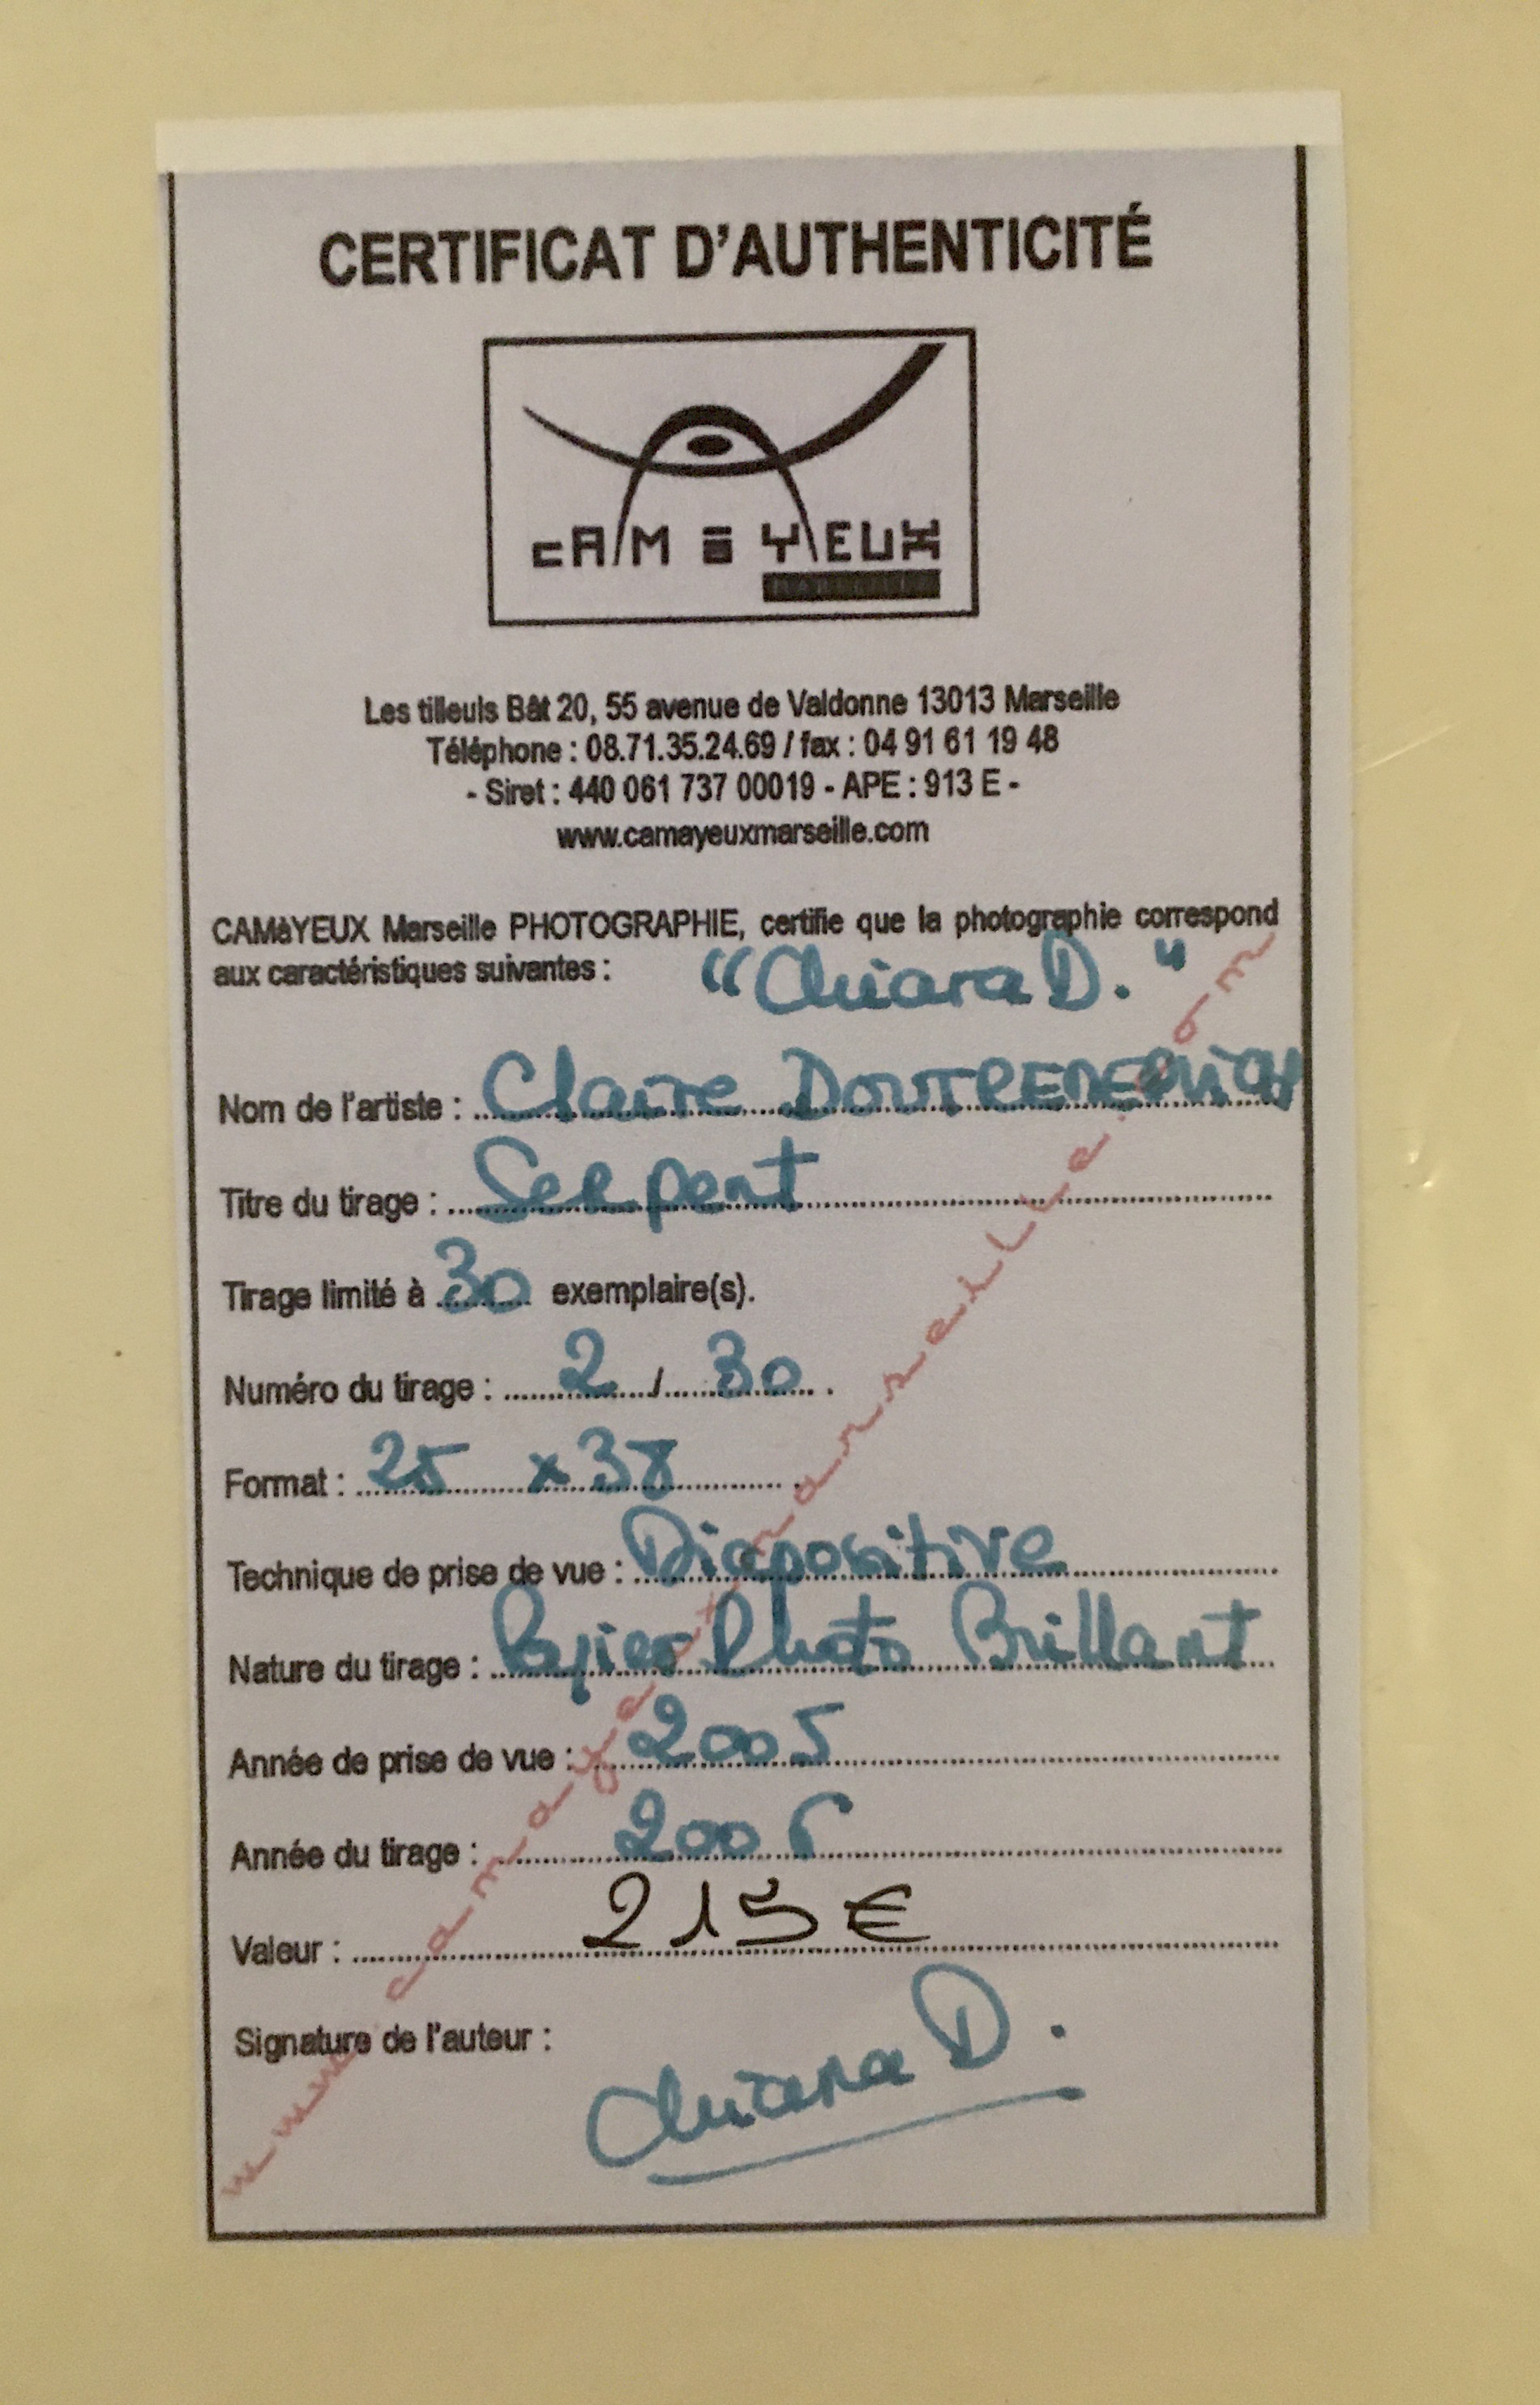 CERTIFICAT D'AUTHENTICITÉ
CAMàYEUX
Les tilleuls Bât 20, 55 avenue de Valdonne 13013 Marseille
Téléphone : 08.71.35.24.69 / fax : 04 91 61 19 48
- Siret : 440 061 737 00019 - APE : 913 E -
www.camayeuxmarseille.com
CAMàYEUX Marseille PHOTOGRAPHIE, certifie que la photographie correspond
aux caractéristiques suivantes : "Chiara D."
Nom de l'artiste : Claire
Titre du tirage : Serpent
Tirage limité à 30 exemplaire(s).
Numéro du tirage : 2 / 30 .
Format : 25 x 38 .
Technique de prise de vue : Diapositive
Nature du tirage : Papier Photo Brillant
Année de prise de vue : 2005
Année du tirage : 2006
Valeur : 215 €
Signature de l'auteur :
Chiara D.
www.camayeuxmarseille.com